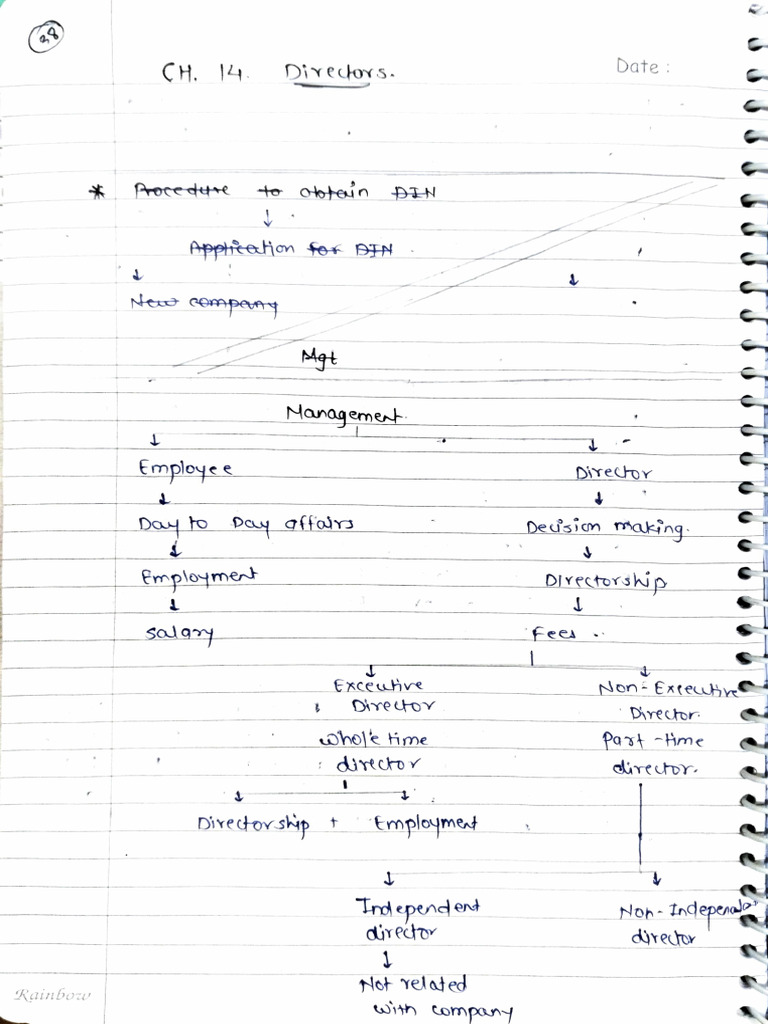 38
CH. 14. Directors.
Date :
* Procedure to obtain DIN
↓
Application for DIN
↓ ↓
New company
Mgt
Management.
↓ ↓
Employee Director
↓ ↓
Day to Day affairs Decision making.
↓ ↓
Employment Directorship
↓ ↓
Salary Fees
↓ ↓
Executive Non-Executive
Director Director.
whole time Part-time
director director.
↓ ↓
Directorship + Employment
↓ ↓
Independent Non-Independent
director director
↓
Not related
with company
Rainbow